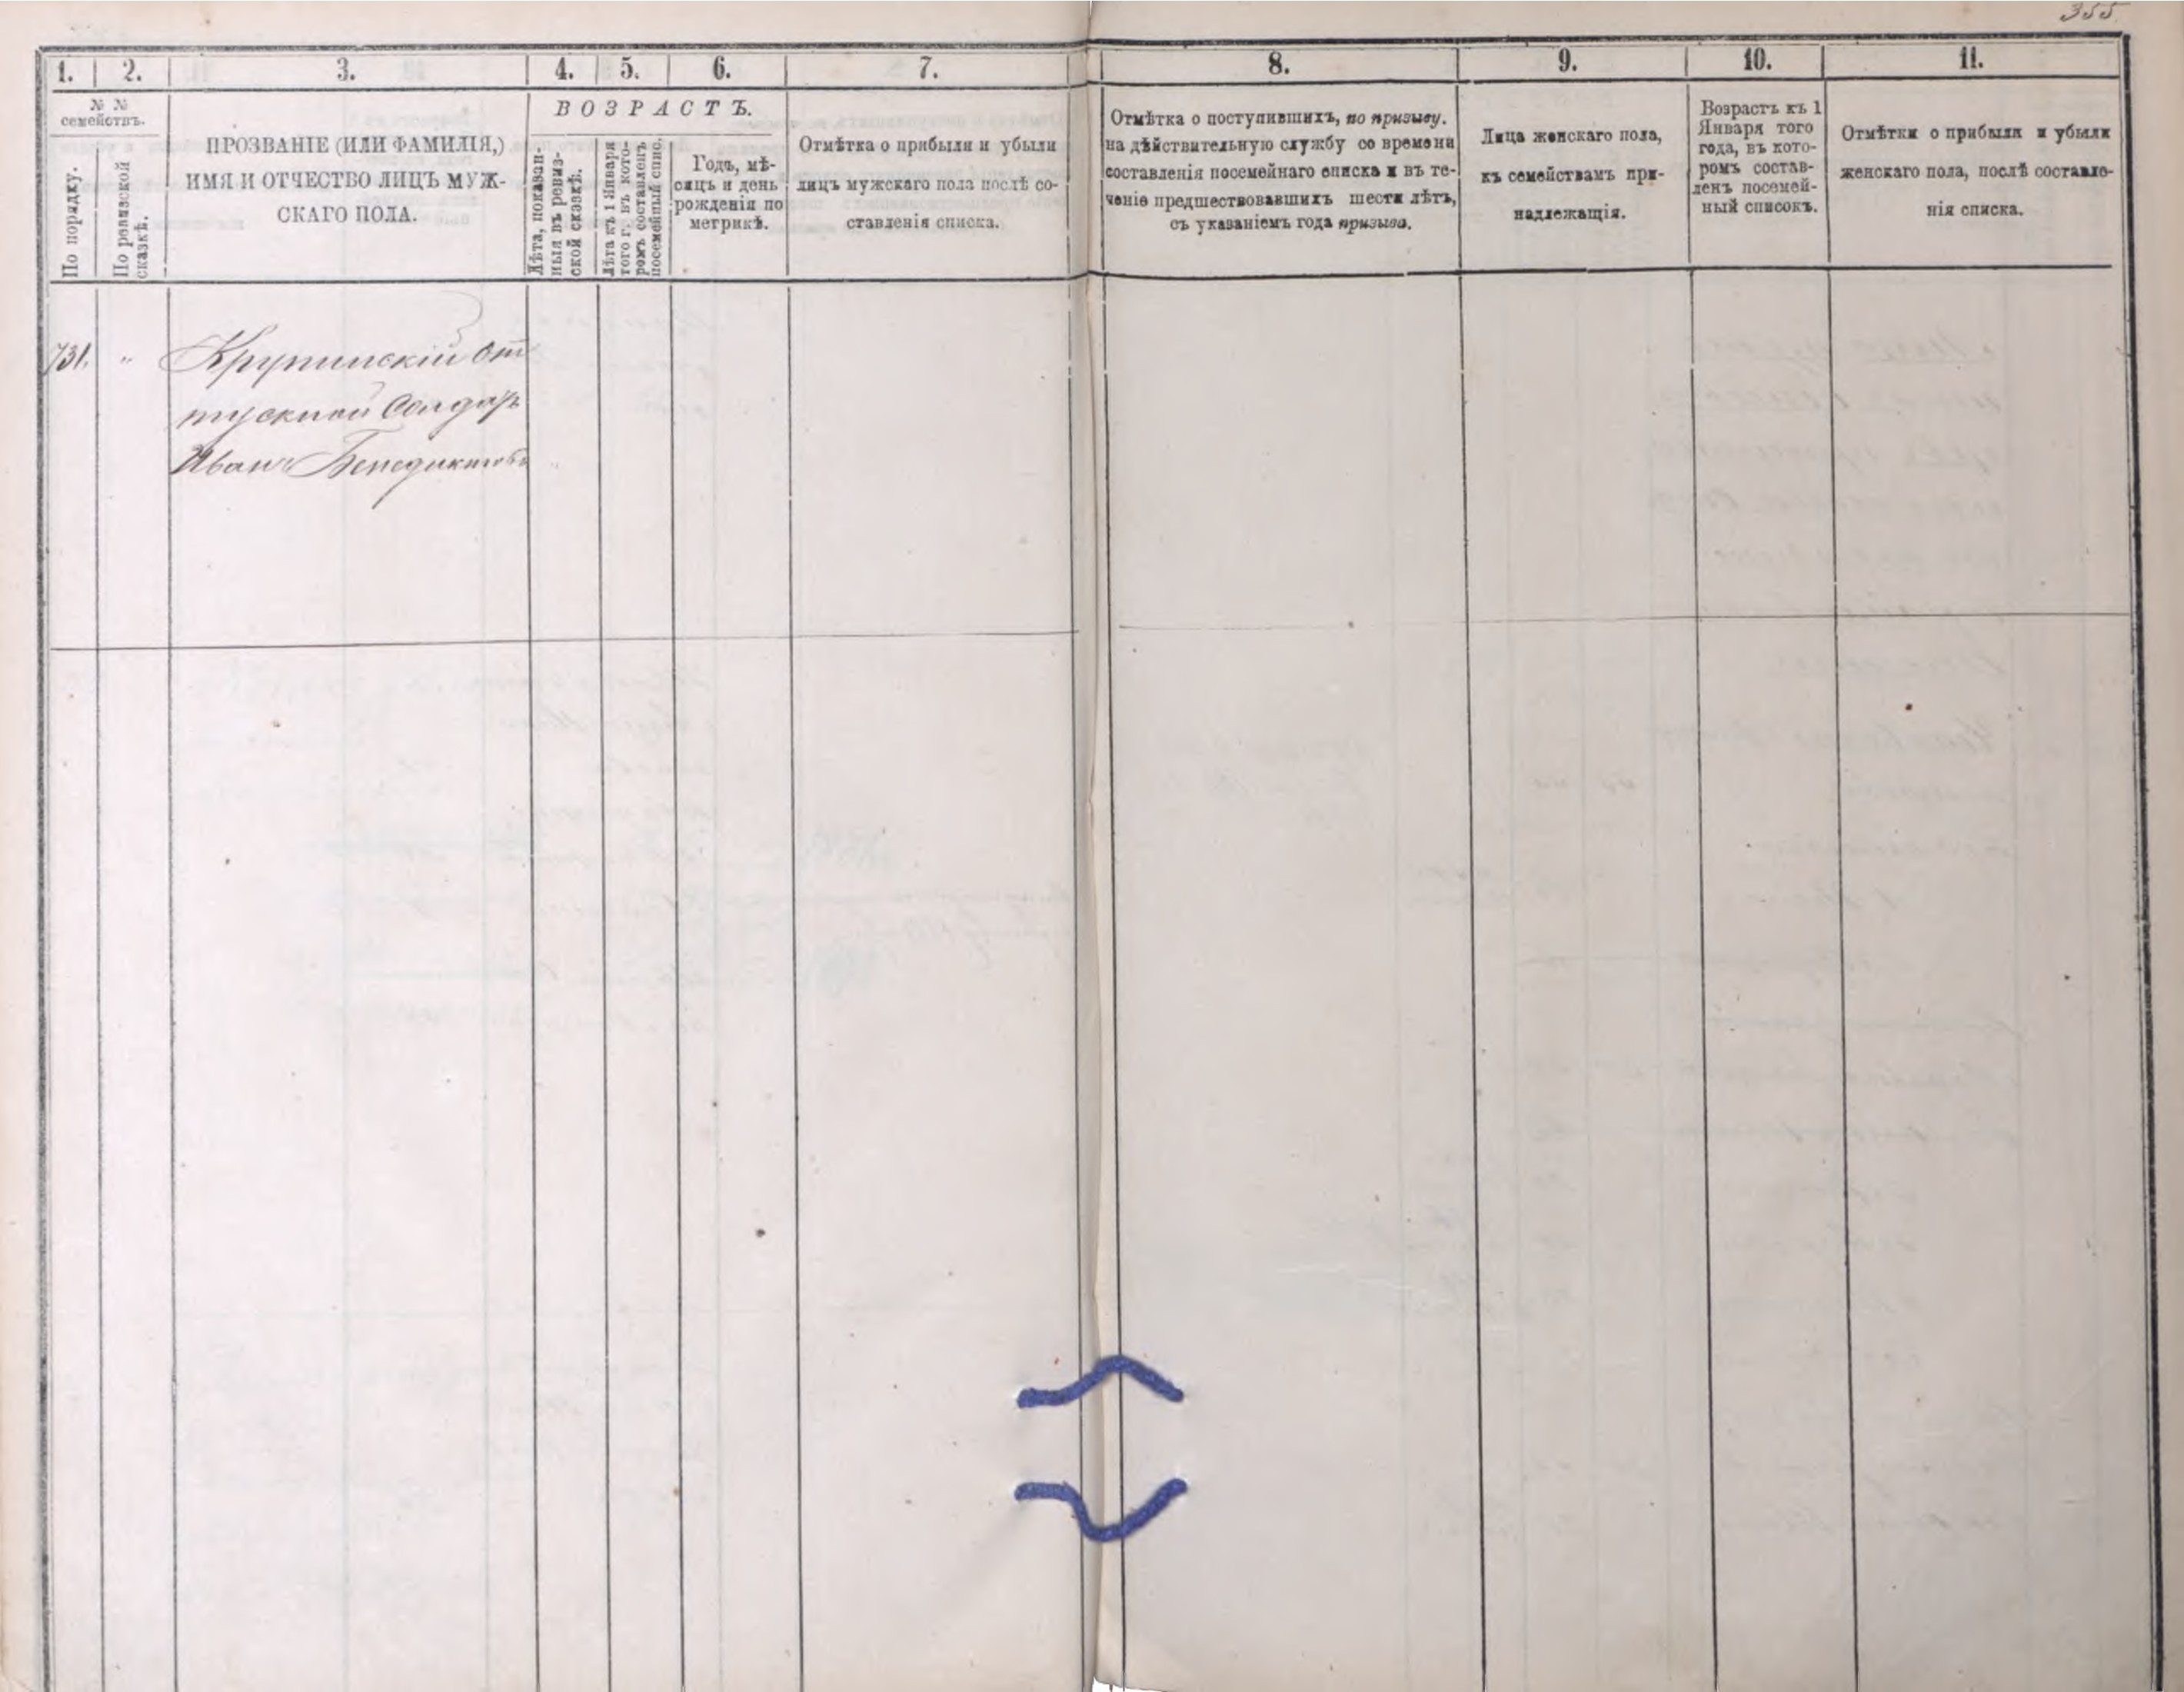 355
1. 2. 3. 4. 5. 6. 7. 8. 9. 10. 11.
№ №
семействъ.
По порядку.
По ревизской
сказкѣ.
ПРОЗВАНІЕ (ИЛИ ФАМИЛІЯ,)
ИМЯ И ОТЧЕСТВО ЛИЦЪ МУЖ-
СКАГО ПОЛА.
ВОЗРАСТЪ.
Лѣта, показан-
ныя въ ревиз-
ской сказкѣ.
Лѣта къ 1 Января
того г. въ кото-
ромъ составленъ
посемейный спис.
Годъ, мѣ-
сяцъ и день
рожденія по
метрикѣ.
Отмѣтка о прибыли и убыли
лицъ мужскаго пола послѣ со-
ставленія списка.
Отмѣтка о поступившихъ, по призыву.
на дѣйствительную службу со времени
составленія посемейнаго списка и въ те-
ченіе предшествовавшихъ шести лѣтъ,
съ указаніемъ года призыва.
Лица женскаго пола,
къ семействамъ при-
надлежащія.
Возрастъ къ 1
Января того
года, въ кото-
ромъ состав-
ленъ посемей-
ный списокъ.
Отмѣтки о прибыли и убыли
женскаго пола, послѣ составле-
нія списка.
731. „ Крупинскій от
пускной Солдатъ
Иванъ Бенедиктовъ